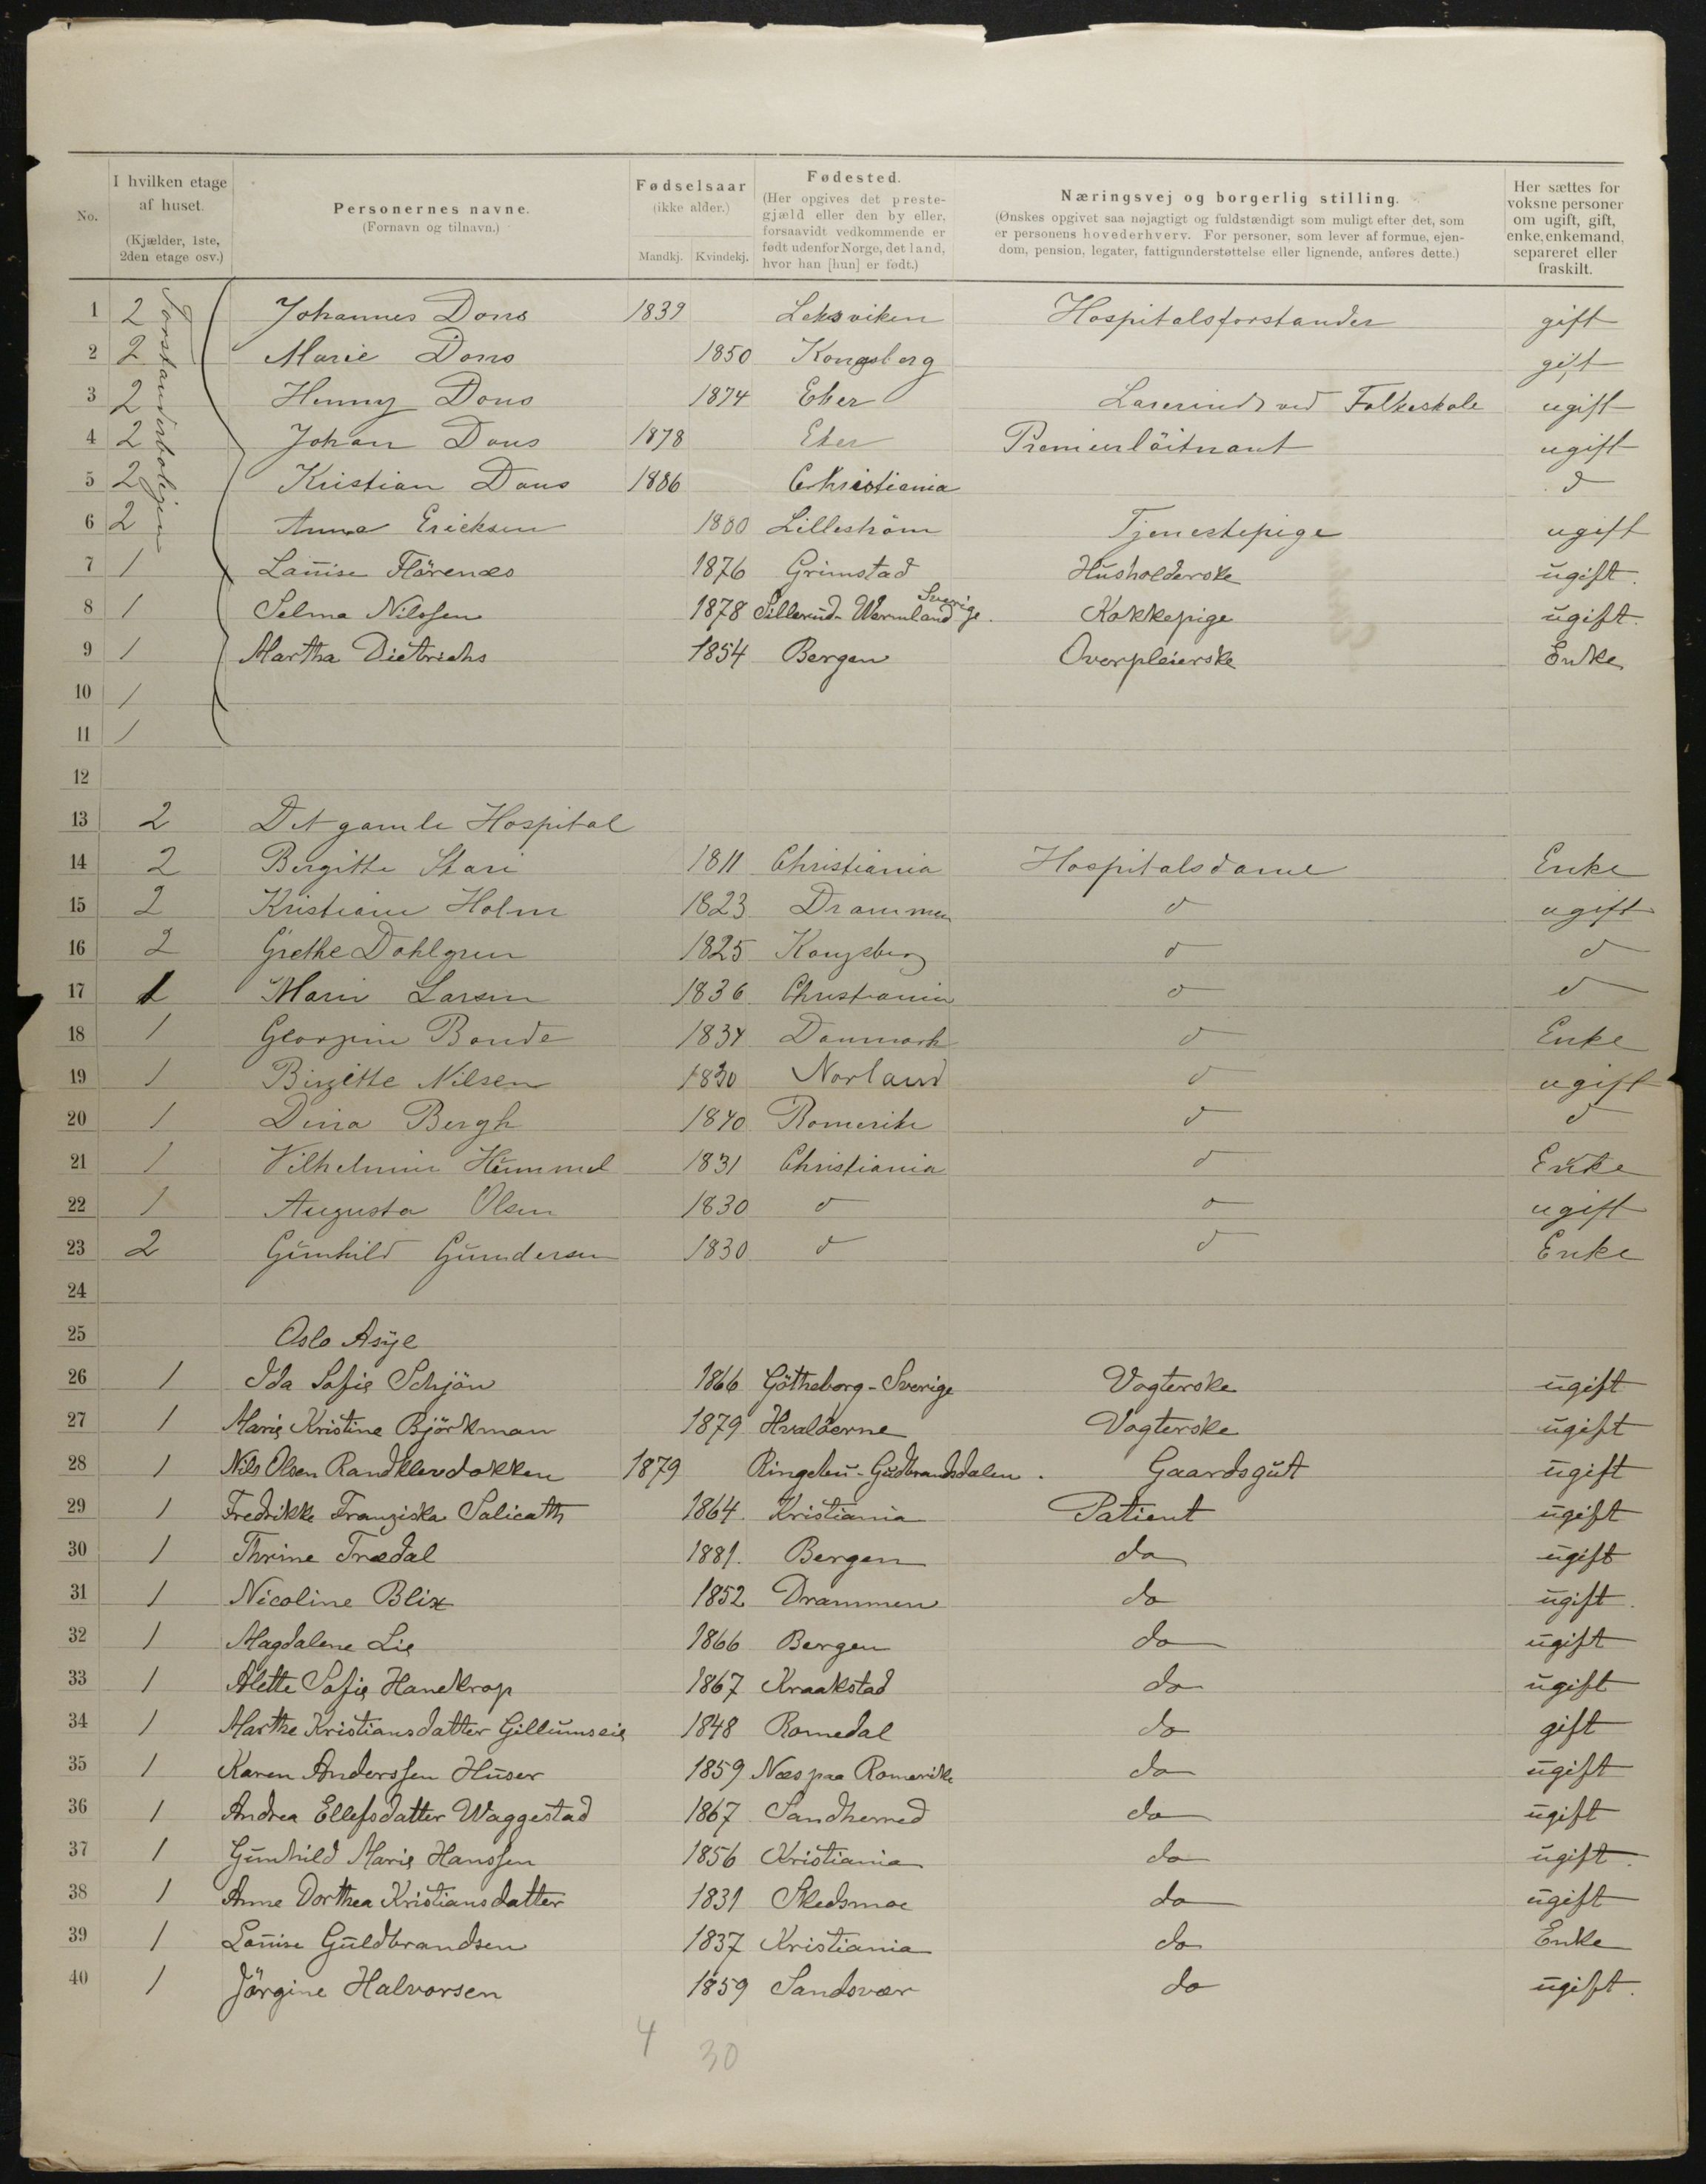 No.
I hvilken etage af huset.
(Kjælder, 1ste, 2den etage osv.)
Personernes navne.
(Fornavn og tilnavn.)
Fødselsaar
(ikke alder.)
Mandkj. Kvindekj.
Fødested.
(Her opgives det preste-
gjæld eller den by eller,
forsaavidt vedkommende er
født udenfor Norge, det land,
hvor han [hun] er født.)
Næringsvej og borgerlig stilling.
(Ønskes opgivet saa nøjagtigt og fuldstændigt som muligt efter det, som
er personens hovederhverv. For personer, som lever af formue, ejen-
dom, pension, legater, fattigunderstøttelse eller lignende, anføres dette.)
Her sættes for
voksne personer
om ugift, gift,
enke, enkemand,
separeret eller
fraskilt.
Forstanderboligen
1 2 Johannes Dons 1839 Leksviken Hospitalsforstander gift
2 2 Marie Dons 1850 Kongsberg gift
3 2 Henny Dons 1874 Eker Lærerinde ved Folkeskole ugift
4 2 Johan Dons 1878 Eker Premierlöitnant ugift
5 2 Kristian Dons 1886 Christiania d
6 2 Anna Ericksen 1880 Lilleström Tjenestepige ugift
7 1 Laūise Flörenæs 1876 Grimstad Hūsholderske ūgift.
8 1 Selma Nilssen 1878 Sillerūd-Wermland Sverige. Kokkepige ūgift.
9 1 Martha Dietrichs 1854 Bergen Overpleierske Enke
10 1
11 1
12
13 2 Det gamle Hospital
14 2 Bergitte Stari 1811 Christiania Hospitalsdame Enke
15 2 Kristiane Holm 1823 Drammen d ugift
16 2 Grethe Dahlgren 1825 Kongsberg d d
17 1 Marie Larsen 1836 Christiania d d
18 1 Georgine Bonde 1834 Danmark d Enke
19 1 Birgitte Nilsen 1830 Norland d ugift
20 1 Dina Bergh 1840 Romerike d d
21 1 Vilhelmine Hümmel 1831 Christiania d Enke
22 1 Augusta Olsen 1830 d d ugift
23 2 Gūnhild Gūndersen 1830 d d Enke
24
25 Oslo Asÿl
26 1 Ida Sofie Schjön 1866 Götheborg-Sverige Vogterske ūgift
27 1 Marie Kristine Björkman 1879 Hvalöerne Vogterske ūgift
28 1 Nils Olsen Randklevdokken 1879 Ringebū-Gūdbrandsdalen. Gaardsgūt ūgift
29 1 Fredrikke Franziska Salicath 1864. Kristiania Patient ūgift
30 1 Thrine Trædal 1881. Bergen do ūgift
31 1 Nicoline Blix 1852 Drammen do ūgift.
32 1 Magdalene Lie 1866 Bergen do ūgift
33 1 Alette Sofie Hanekrop 1867 Kraakstad do ūgift
34 1 Marthe Kristiansdatter Gillūmseie 1848 Romedal do gift
35 1 Karen Anderssen Hūser 1859 Næs paa Romerike do ūgift
36 1 Andrea Ellefsdatter Waggestad 1867 Sandherred do ūgift
37 1 Gūnhild Marie Hanssen 1856 Kristiania do ūgift.
38 1 Anne Dorthea Kristiansdatter 1831 Skedsmoe do ūgift
39 1 Loūise Gūldbrandsen 1837 Kristiania do Enke
40 1 Jörgine Halvorsen 1859 Sandsvær do ūgift.
4 30